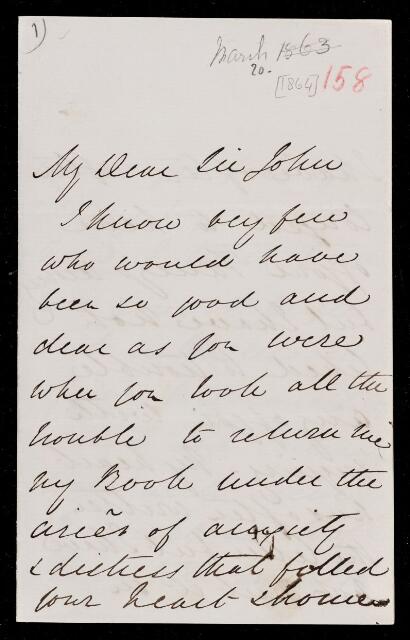 1)
March 1863
20.
[1864] 158
My Dear Sir John
I know very few
who would have
been so good and
dear as you were
when you took all the
trouble to return me
my Book under the
of anxiety
& distress that filled
your heart & home